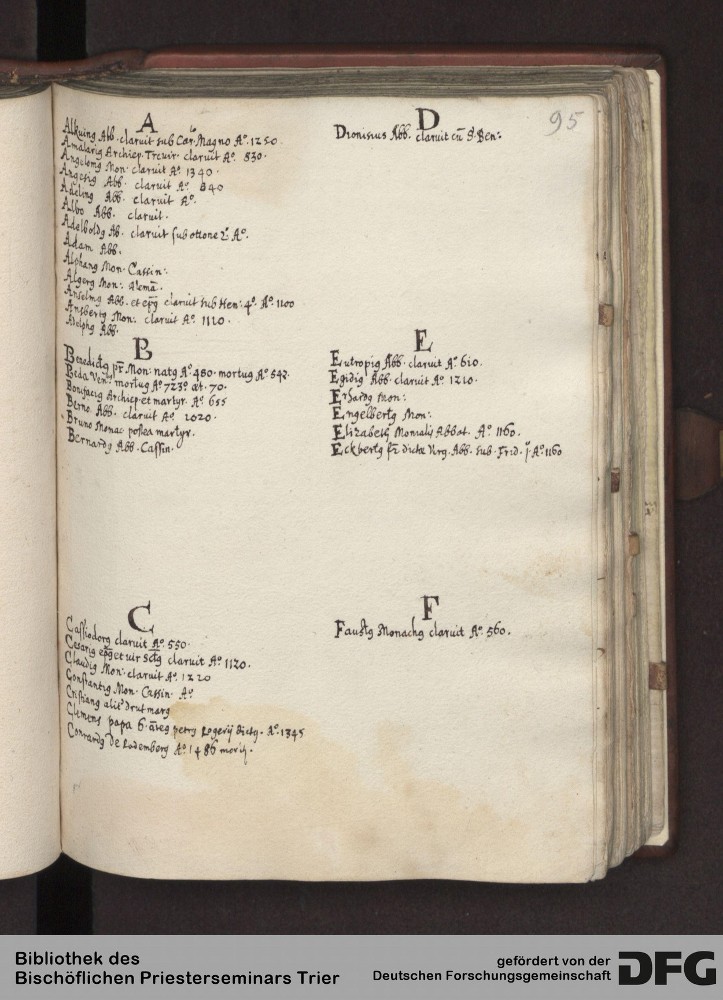 95
A
Alkuinꝯ Abb. claruit sub Car. Magno Aº. 1250.
Amalariꝯ Archiep. Trevir. claruit Aº. 830.
Angelomꝯ Mon: claruit Aº 1340.
Angesiꝯ Abb. claruit Aº 840
Adelinꝯ Abb. claruit Aº.
Albo Abb. claruit.
Adelboldꝯ Ab. claruit sub ottone 2º Aº.
Adam Abb.
Alphanꝯ Mon. Cassin:.
Algerꝯ Mon: Alemã.
Anselmꝯ Abb. et ep̃ꝯ claruit sub Hen: 4º. Aº. 1100
Ansbertꝯ Mon: claruit Aº. 1120.
Adelphꝯ Abb.
B
Benedictꝯ pr̃ Mon: natꝯ Aº 480. mortuꝯ Aº 542.
Beda Ven: mortuꝯ Aº 723º æt. 70.
Bonifaciꝯ Archiep. et martyr. Aº 655
Berno Abb. claruit Aº 1020.
Bruno Monac postea martyr.
Bernardꝯ Abb. Cassin.
C
Cassiodorꝯ claruit Aº. 550.
Cesariꝯ ep̃ꝯ et vir sctꝯ claruit Aº. 1120.
Claudiꝯ Mon: claruit Aº. 1220
Constantiꝯ Mon. Cassin. Aº
Cristianꝯ alit̃ drutmarꝯ
Clemens papa 6. ãteꝯ petrꝯ Rogerij dictꝯ. Aº. 1345
Conrardꝯ De Rodemberg Aº. 1486 morit̃.
D
Dionisius Abb. claruit cũ S. Ben:.
E
Eutropiꝯ Abb. claruit Aº. 610.
Egidiꝯ Abb. claruit Aº. 1210.
Mon:
Engelbertꝯ Mon:
Elizabeth Monialis Abbat. Aº. 1160.
Eckbertꝯ fr̃ dictæ Virg. Abb. sub. Frid. j. Aº. 1160
F
Faustꝯ Monachꝯ claruit Aº. 560.
Bibliothek des
Bischöflichen Priesterseminars Trier
gefördert von der
Deutschen Forschungsgemeinschaft
DFG